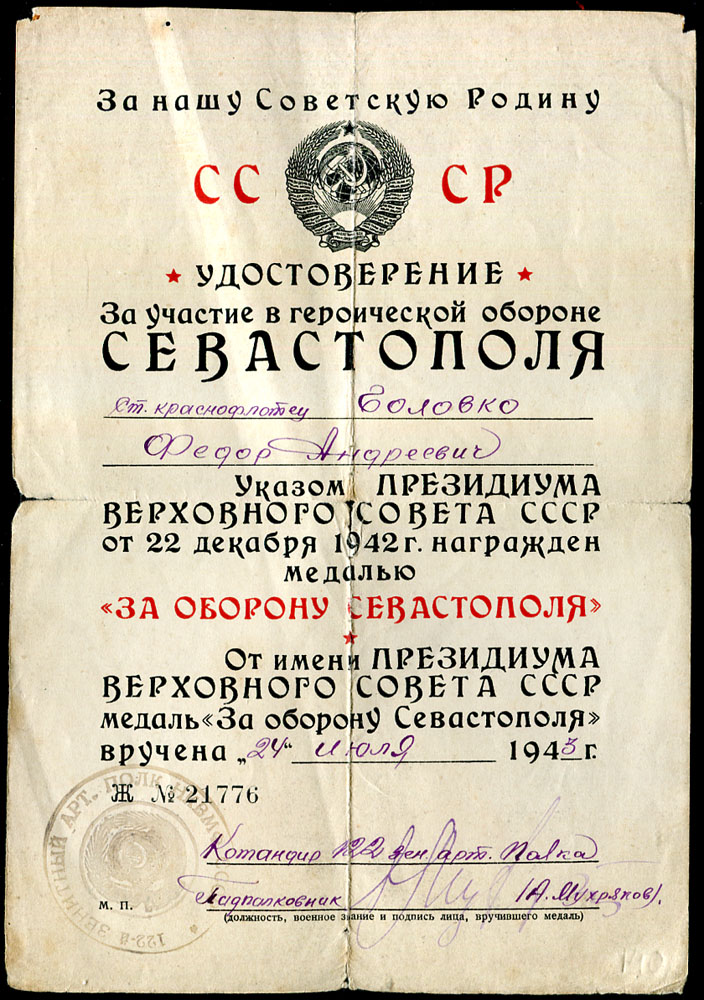 За нашу Советскую Родину
СС СР
УДОСТОВЕРЕНИЕ
За участие в героической обороне
СЕВАСТОПОЛЯ
Ст. краснофлотец Головко
Федор Андреевич
Указом ПРЕЗИДИУМА
ВЕРХОВНОГО СОВЕТА СССР
от 22 декабря 1942 г. награжден
медалью
«ЗА ОБОРОНУ СЕВАСТОПОЛЯ»
От имени ПРЕЗИДИУМА
ВЕРХОВНОГО СОВЕТА СССР
медаль «За оборону Севастополя»
вручена „24“ июля 1943 г.
Ж № 21776
Командир 122 зен. арт. Полка
Подполковник (А. Мухряков).
М. П.
(должность, военное звание и подпись лица, вручившего медаль)
122-й ЗЕНИТНЫЙ АРТ. ПОЛК